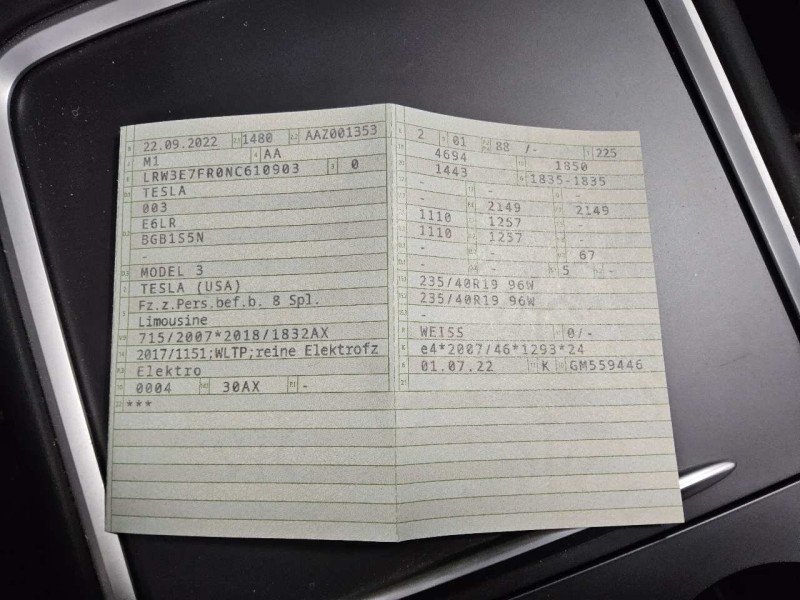 22.09.2022 1480 AAZ001353
M1 AA
LRW3E7FR0NC610903 0
TESLA
003
E6LR
BGB1S5N
-
MODEL 3
TESLA (USA)
Fz.z.Pers.bef.b. 8 Spl.
Limousine
715/2007*2018/1832AX
2017/1151;WLTP;reine Elektrofz
Elektro
0004 30AX -
***
2 01 88 /- 225
4694 1850
1443 1835-1835
- - -
- 2149 2149
1110 1257 -
1110 1237 -
- - 67
- 5 -
235/40R19 96W
235/40R19 96W
-
WEISS 0/-
e4*2007/46*1293*24
01.07.22 K GM559446